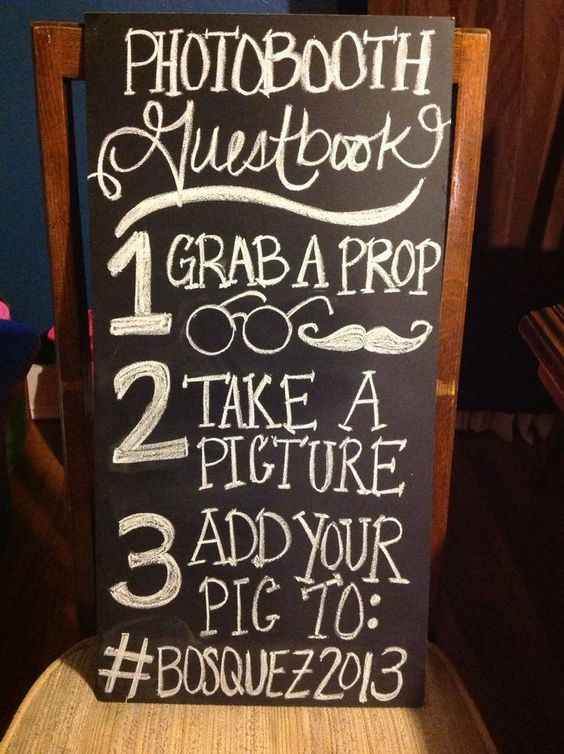 PHOTOBOOTH
Guestbook
1 GRAB A PROP
2 TAKE A
PICTURE
3 ADD YOUR
PIC TO:
#BOSQUEZ2013